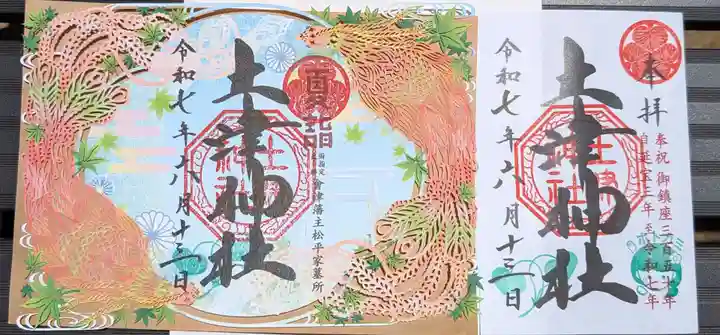 夏詣
国指定
會津藩主松平家墓所
土津神社
令和七年八月十三日
本拝
奉祝 御鎮座三百五十年
自延宝三年 至令和七年
土津神社
土津神社
令和七年八月十三日